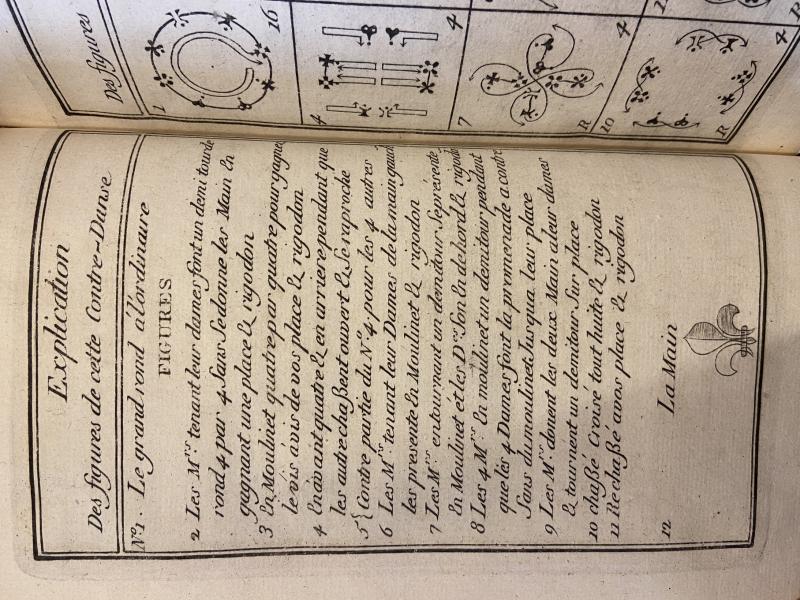 Des figures
1
16
4
4
7
4
R
10
4
R
R
Explication
Des figures de cette Contre-Danse
N°1. Le grand rond a l'ordinaire
FIGURES
2 Les M.rs tenant leur dames font un demi tour de
rond 4 par 4 Sans Se donne les Main En
gagnant une place & rigodon.
3 En Moulinet quatre par quatre pour gagner
le vis avis de vos place & rigodon
4 En avant quatre & en arriere pendant que
les autre chaßent ouvert & Se raproche
5 { Contre partie du N.° 4 pour les 4 autres
6 Les M.rs tenant leur Dames de la main gauche
les presente En Moulinet & rigodon
7 Les M.rs en tournant un demitour Se presente
En Moulinet et les D.es Son En dehord & rigodon
8 Les 4 M.rs En moulinet un demitour pendant
que les 4 Dames font la promenade a contre
Sans du moulinet Jusqua leur place
9 Les M.rs donent les deux Main a leur dames
& tournent un demitour Sur place
10 chaßé Croisé tout huite & rigodon
11 Rechaßé a nos place & rigodon
12 La Main